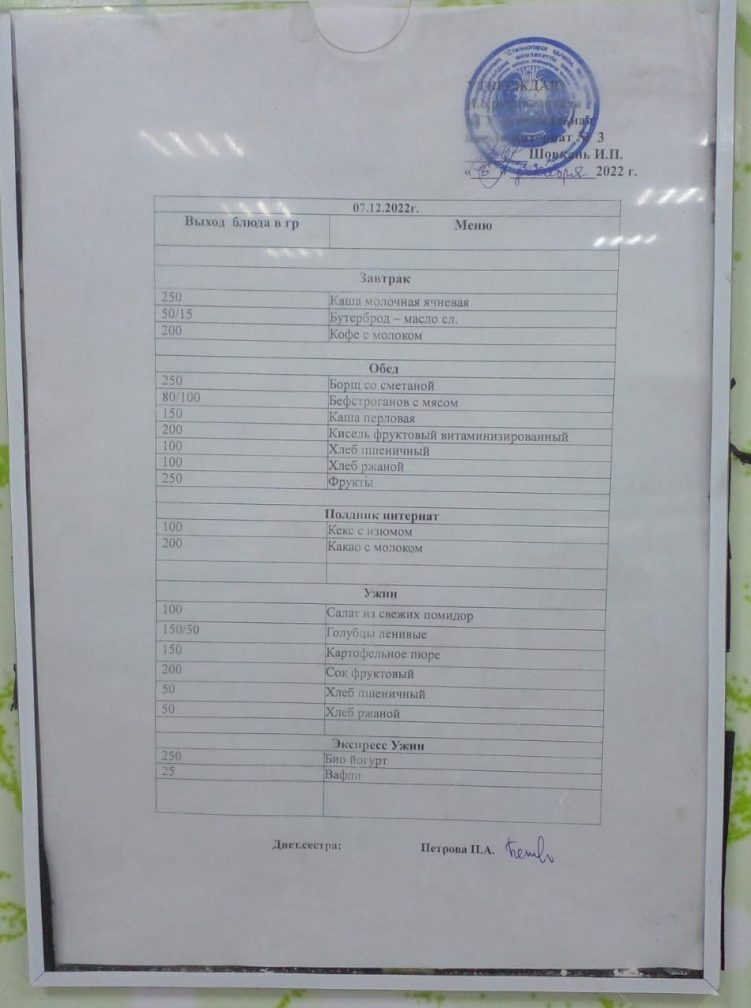 УТВЕРЖДАЮ
интернат № 3
Шовкань И.П.
2022 г.
07.12.2022г.
Выход блюда в гр Меню
Завтрак
250 Каша молочная ячневая
50/15 Бутерброд – масло сл.
200 Кофе с молоком
Обед
250 Борщ со сметаной
80/100 Бефстроганов с мясом
150 Каша перловая
200 Кисель фруктовый витаминизированный
100 Хлеб пшеничный
100 Хлеб ржаной
250 Фрукты
Полдник интернат
100 Кекс с изюмом
200 Какао с молоком
Ужин
100 Салат из свежих помидор
150/50 Голубцы ленивые
150 Картофельное пюре
200 Сок фруктовый
50 Хлеб пшеничный
50 Хлеб ржаной
Экспресс Ужин
250 Био йогурт
25 Вафли
Диет.сестра: Петрова П.А.